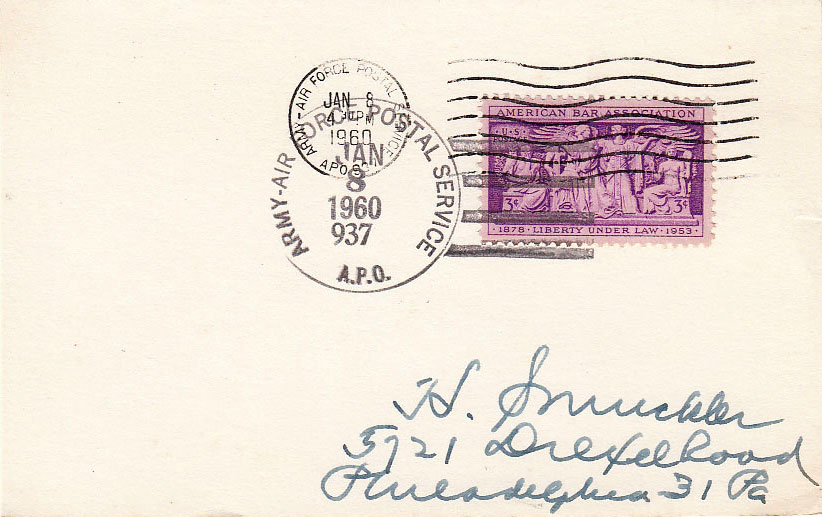 ARMY-AIR FORCE POSTAL SERVICE
JAN 8
4 PM
1960
APO
ARMY-AIR FORCE POSTAL SERVICE
JAN
8
1960
937
A.P.O.
AMERICAN BAR ASSOCIATION
U.S.
3¢ 3¢
1878 · LIBERTY UNDER LAW · 1953
H. Smuckler
5721 Drexelhood
Philadelphia 31 Pa